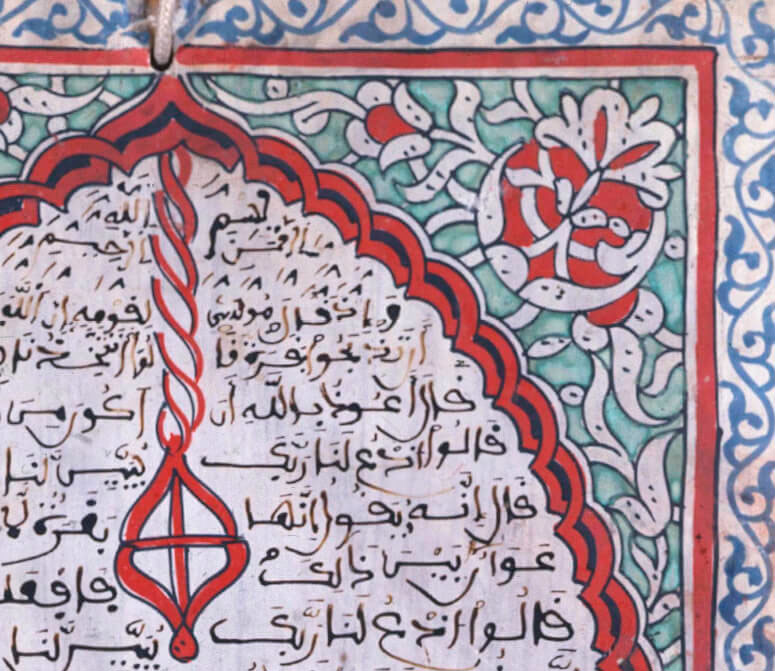 بسم الله
الرحمن الرحيم
وإذ قال موسى لقومه إن الله
أن تذبحوا بقرة قالوا أتتخذنا
قال أعوذ بالله أن أكون من
قالوا ادع لنا ربك يبين لنا
قال إنه يقول إنها بقرة لا
عوان بين ذلك
قالوا ادع لنا ربك يبين لنا